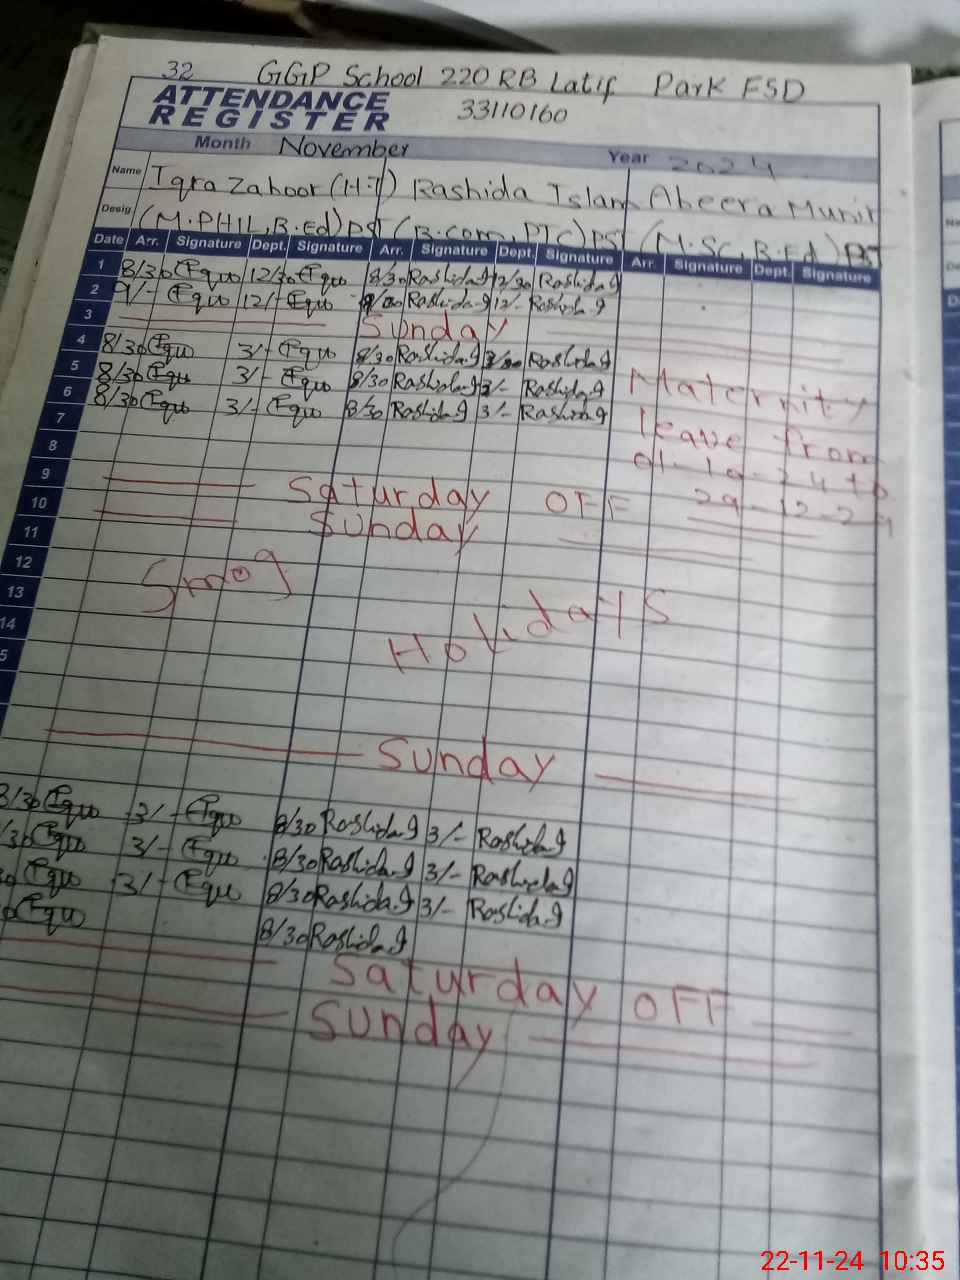 32 GGP School 220 RB Latif Park FSD
ATTENDANCE
REGISTER
33110160
Month November Year 2024
Name Iqra Zahoor (H.T) Rashida Islam Abeera Munir
Desig (M.PHIL, B.Ed) PST (B.Com, PTC) PST (M.SC, B.Ed) PST
Date Arr. Signature Dept. Signature Arr. Signature Dept. Signature Arr. Signature Dept. Signature
1 8/30 Iqra 12/30 Iqra 8/30 Rashida.I 12/30 Rashida.I
2 9/- Iqra 12/- Iqra Rashida.I 12/- Rashida.I
3 Sunday
4 8/30 Iqra 3/- Iqra 8/30 Rashida.I Rashida.I
5 8/30 Iqra 3/- Iqra 8/30 Rashida.I 3/- Rashida.I Maternity
6 8/30 Iqra 3/- Iqra 8/30 Rashida.I 3/- Rashida.I
7 leave from
8
9 Saturday OFF
10 Sunday
11
12 Smog
13
14 Holidays
5
Sunday
8/30 Iqra 3/- Iqra 8/30 Rashida.I 3/- Rashida.I
/30 Iqra 3/- Iqra 8/30 Rashida.I 3/- Rashida.I
30 Iqra 3/- Iqra 8/30 Rashida.I 3/- Rashida.I
0 Iqra 8/30 Rashida.I
Saturday OFF
Sunday
22-11-24 10:35